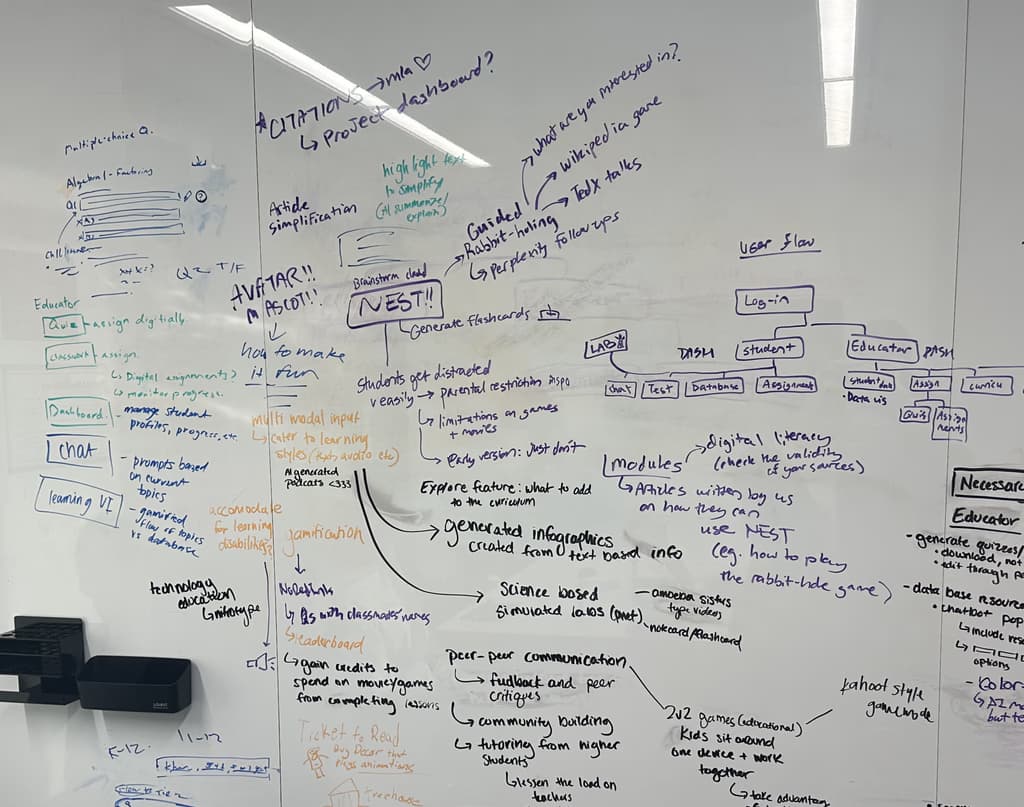 * CITATIONS → mla ♡
↳ Project dashboard?
Multiple-choice Q.
Algebra 1 - Factoring
Q1
Q2 T/F
Educator
Quiz - assign digitally
classwork - assign
↳ Digital assignments?
↳ monitor progress.
Dashboard - manage student
profiles, progress, etc
chat
- prompts based
on current
topics
learning VI
- gamified
flow of topics
vs database
Article
simplification
highlight text
to simplify
(AI summarize/
explain)
AVATAR!!
MASCOT!!
how to make
it fun
Brainstorm cloud
NEST!!
Generate flashcards
Guided
Rabbit-holing
what are you interested in?
wikipedia game
TedX talks
↳ perplexity follow ups
Students get distracted
easily → parental restriction inspo
↳ limitations on games
+ movies
↳ early version: Just don't
Explore feature: what to add
to the curriculum
multi modal input
↳ cater to learning
styles (text, audio etc)
AI generated
podcasts <333
accomodate
for learning
disabilities?
gamification
technology
education
↳ mitotype
↳ Qs with classmates names
↳ leaderboard
↳ gain credits to
spend on money/games
from completing lessons
Ticket to Read
buy Decor that
plays animations
treehouse
K-12.
generated infographics
created from text based info
Science based
simulated labs (phet)
- amoeba sisters
type videos
- notecard/flashcard
peer-peer communication
↳ feedback and peer
critiques
↳ community building
↳ tutoring from higher
students
↳ lessen the load on
teachers
2v2 games (educational)
Kids sit around
one device + work
together
↳ take advantage
kahoot style
gamemode
User flow
Log-in
LAB
DASH
student
Educator
DASH
chat
Test
Database
Assignment
student data
• Data vis
Assign
curricu
Quiz
Assign
ments
modules
digital literacy
(check the validity
of your sources)
↳ Articles written by us
on how they can
use NEST
(eg. how to play
the rabbit-hole game)
Necessar
Educator
- generate quizzes/
• download, not
• edit through
- data base resource
• chatbot pop
↳ include res
options
- Kolor-
↳ AI ma
but te